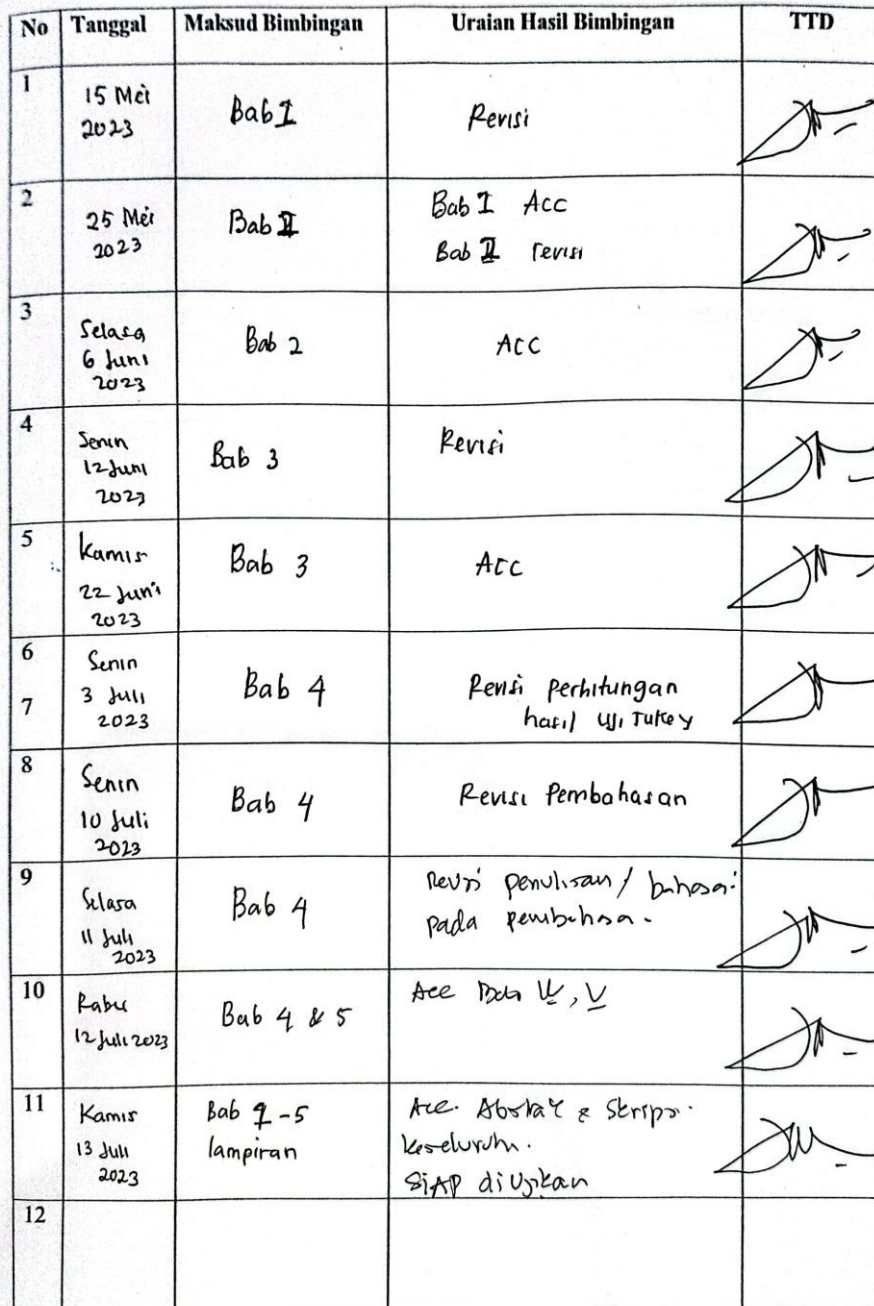 No Tanggal Maksud Bimbingan Uraian Hasil Bimbingan TTD
1
15 Mei
2023
Bab I
Revisi
2
25 Mei
2023
Bab II
Bab I Acc
Bab II revisi
3
Selasa
6 Juni
2023
Bab 2
ACC
4
Senin
12 Juni
2023
Bab 3
Revisi
5
Kamis
22 Juni
2023
Bab 3
ACC
6
7
Senin
3 Juli
2023
Bab 4
Revisi Perhitungan
hasil uji Tukey
8
Senin
10 Juli
2023
Bab 4
Revisi Pembahasan
9
Selasa
11 Juli
2023
Bab 4
Revisi penulisan / bahasa
pada pembahasa.
10
Rabu
12 Juli 2023
Bab 4 & 5
Acc Bab IV, V
11
Kamis
13 Juli
2023
Bab 1-5
lampiran
Acc. Abstrak & Skripsi.
keseluruhn.
SIAP diUjikan
12